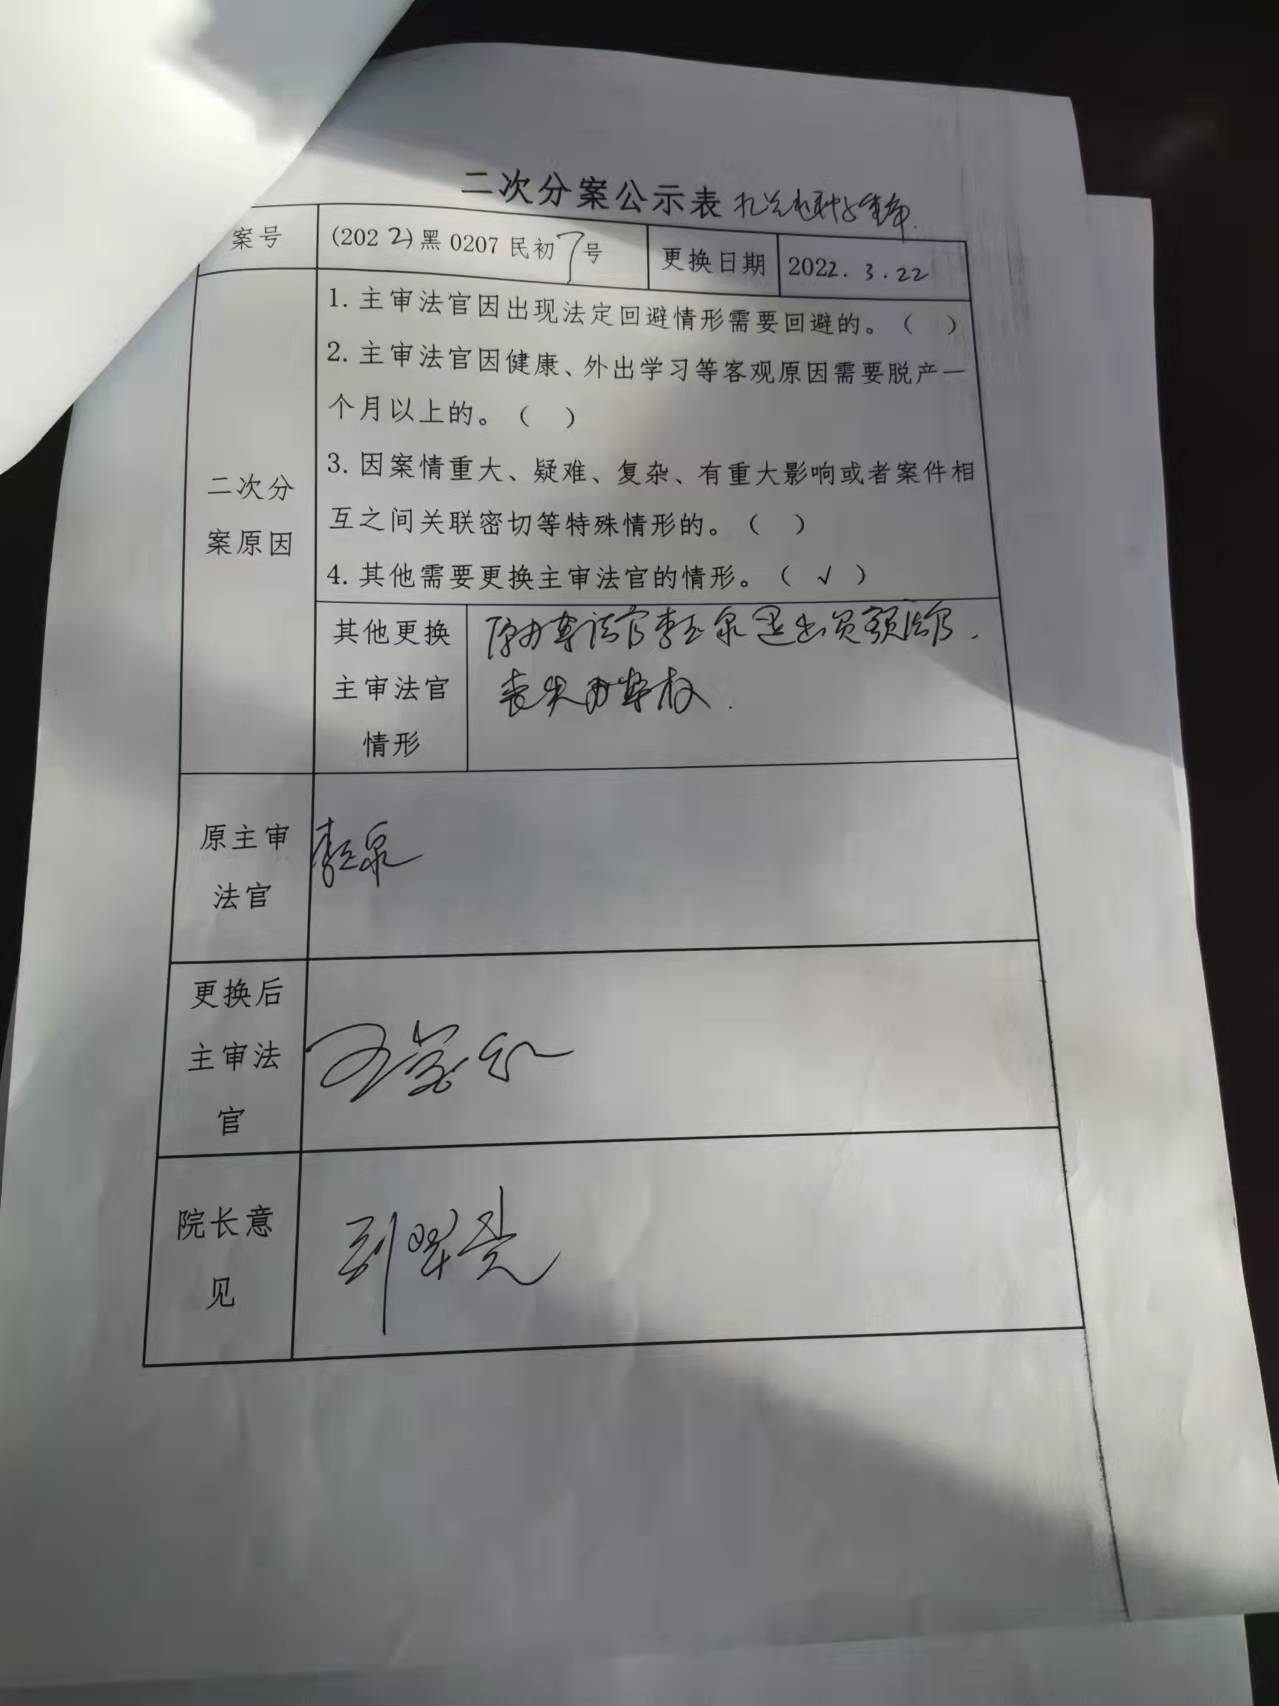 二次分案公示表
案号 (2022)黑0207民初7号 更换日期 2022.3.22
1.主审法官因出现法定回避情形需要回避的。（ ）
2.主审法官因健康、外出学习等客观原因需要脱产一
个月以上的。（ ）
二次分
案原因
3.因案情重大、疑难、复杂、有重大影响或者案件相
互之间关联密切等特殊情形的。（ ）
4.其他需要更换主审法官的情形。（√）
其他更换
主审法官
情形
原办案法官李玉泉退出员额法官.
丧失办案权.
原主审
法官
李玉泉
更换后
主审法
官
院长意
见